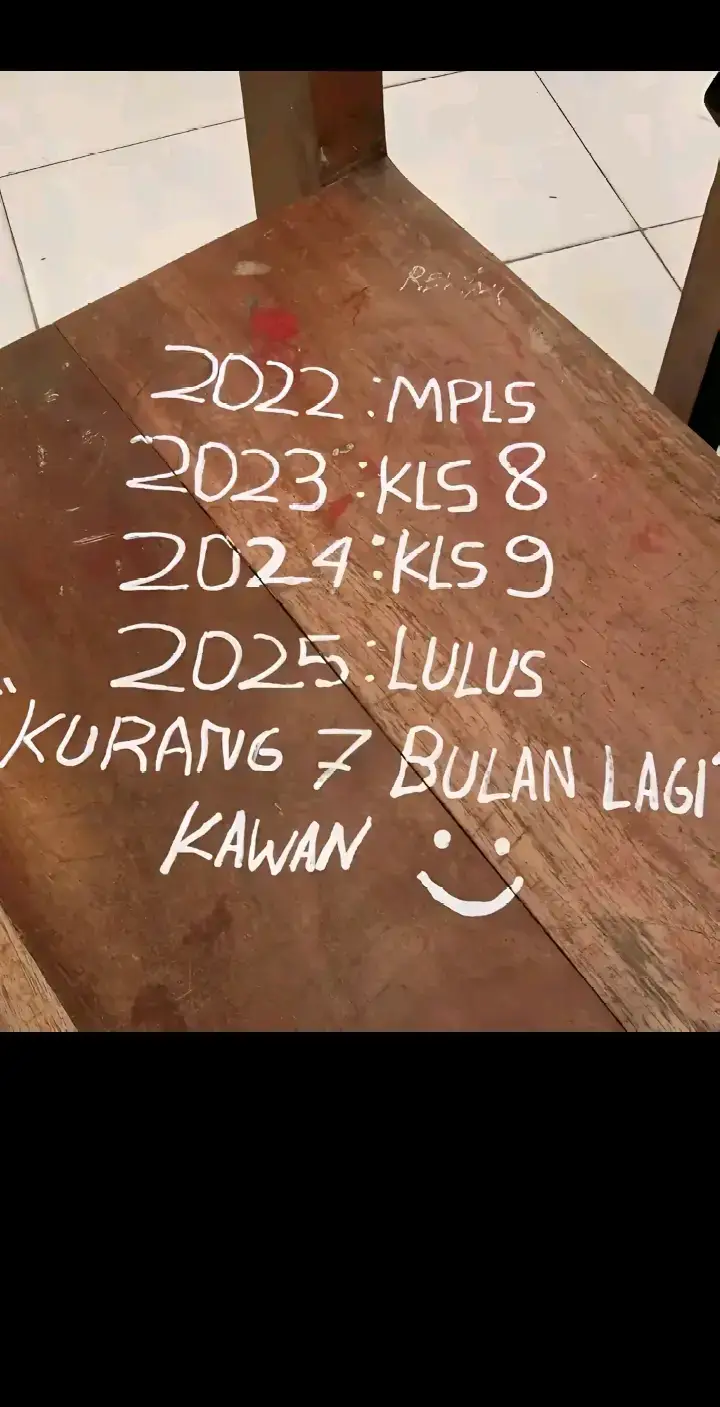 2022 : MPLS
2023 : KLS 8
2024 : KLS 9
2025 : LULUS
"KURANG 7 BULAN LAGI"
KAWAN